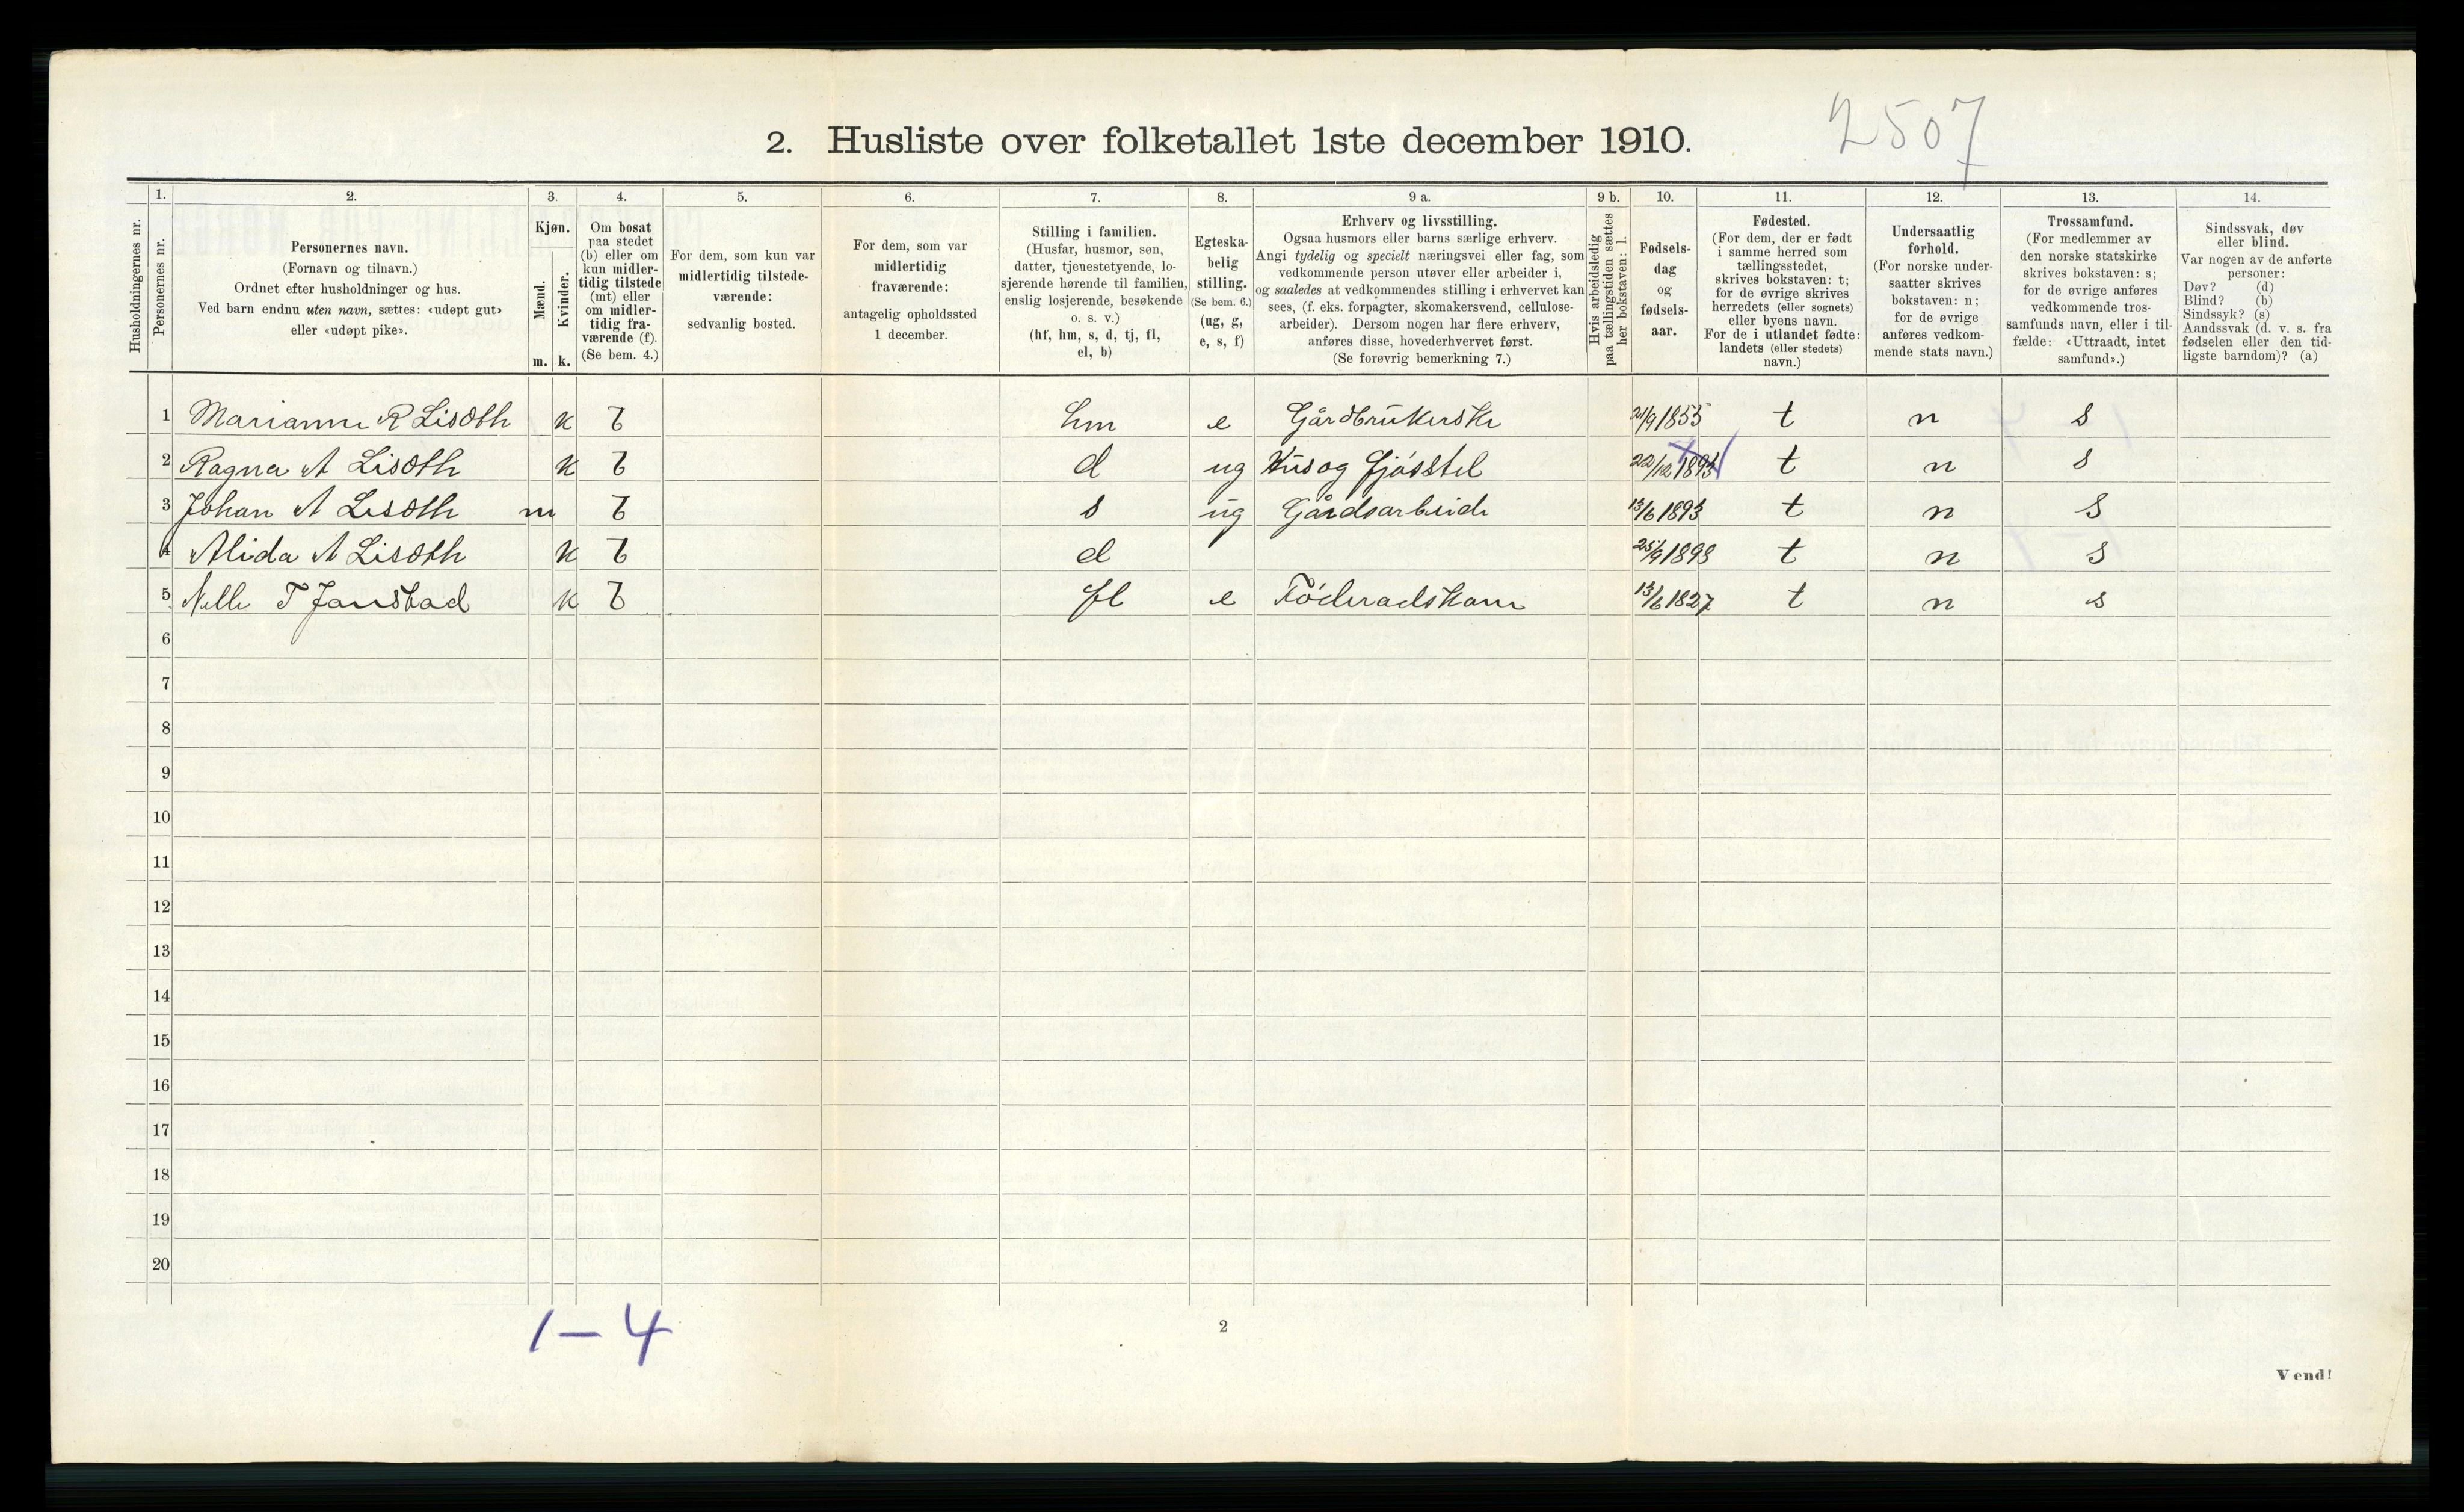 2507
2. Husliste over folketallet 1ste december 1910.
Husholdningernes nr.
1.
Personernes nr.
2.
Personernes navn.
(Fornavn og tilnavn.)
Ordnet efter husholdninger og hus.
Ved barn endnu uten navn, sættes: «udøpt gut»
eller «udøpt pike».
3.
Kjøn.
Mænd.
m.
Kvinder.
k.
4.
Om bosat
paa stedet
(b) eller om
kun midler-
tidig tilstede
(mt) eller
om midler-
tidig fra-
værende (f).
(Se bem. 4.)
5.
For dem, som kun var
midlertidig tilstede-
værende:
sedvanlig bosted.
6.
For dem, som var
midlertidig
fraværende:
antagelig opholdssted
1 december.
7.
Stilling i familien.
(Husfar, husmor, søn,
datter, tjenestetyende, lo-
sjerende hørende til familien,
enslig losjerende, besøkende
o. s. v.)
(hf, hm, s, d, tj, fl,
el, b)
8.
Egteska-
belig
stilling.
(Se bem. 6.)
(ug, g,
e, s, f)
9 a.
Erhverv og livsstilling.
Ogsaa husmors eller barns særlige erhverv.
Angi tydelig og specielt næringsvei eller fag, som
vedkommende person utøver eller arbeider i,
og saaledes at vedkommendes stilling i erhvervet kan
sees, (f. eks. forpagter, skomakersvend, cellulose-
arbeider). Dersom nogen har flere erhverv,
anføres disse, hovederhvervet først.
(Se forøvrig bemerkning 7.)
9 b.
Hvis arbeidsledig
paa tællingstiden sættes
her bokstaven: l.
10.
Fødsels-
dag
og
fødsels-
aar.
11.
Fødested.
(For dem, der er født
i samme herred som
tællingsstedet,
skrives bokstaven: t;
for de øvrige skrives
herredets (eller sognets)
eller byens navn.
For de i utlandet fødte:
landets (eller stedets)
navn.)
12.
Undersaatlig
forhold.
(For norske under-
saatter skrives
bokstaven: n;
for de øvrige
anføres vedkom-
mende stats navn.)
13.
Trossamfund.
(For medlemmer av
den norske statskirke
skrives bokstaven: s;
for de øvrige anføres
vedkommende tros-
samfunds navn, eller i til-
fælde: «Uttraadt, intet
samfund».)
14.
Sindssvak, døv
eller blind.
Var nogen av de anførte
personer:
Døv? (d)
Blind? (b)
Sindssyk? (s)
Aandssvak (d. v. s. fra
fødselen eller den tid-
ligste barndom)? (a)
1 Marianne R Lisøth k b hm e Gårdbrukerske 21/9 1855 t n s
2 Ragna A Lisøth k b d ug Hus og Fjösstel 22/12 t n s
3 Johan A Lisøth m b s ug Gårdsarbeide 13/6 1893 t n s
4 Alida A Lisøth k b d 25/9 1898 t n s
5 T k b fl e Föderadskone 13/6 1827 t n s
6
7
8
9
10
11
12
13
14
15
16
17
18
19
20
1-4
2
Vend!